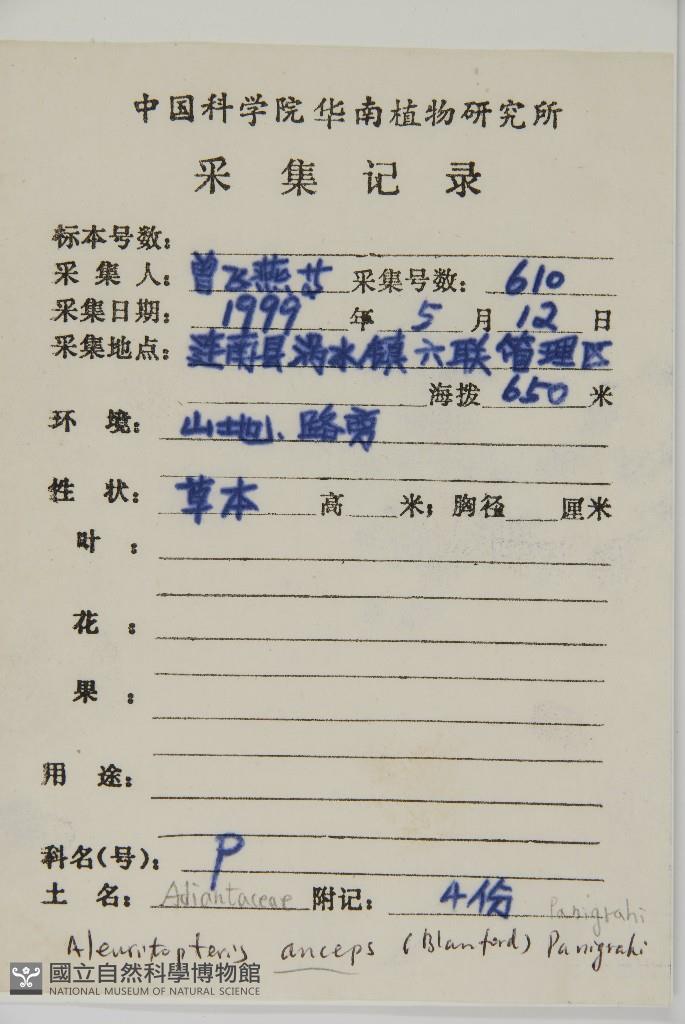 中国科学院华南植物研究所
采集记录
标本号数：
采集人：曾飞燕等 采集号数：610
采集日期：1999年5月12日
采集地点：连南县涡水镇六联管理区
海拨650米
环境：山地、路旁
性状：草本 高 米；胸径 厘米
叶：
花：
果：
用途：
科名(号)：P
土名：Adiantaceae 附记：4份 Panigrahi
Aleuritopteris anceps (Blanford) Panigrahi
國立自然科學博物館
NATIONAL MUSEUM OF NATURAL SCIENCE